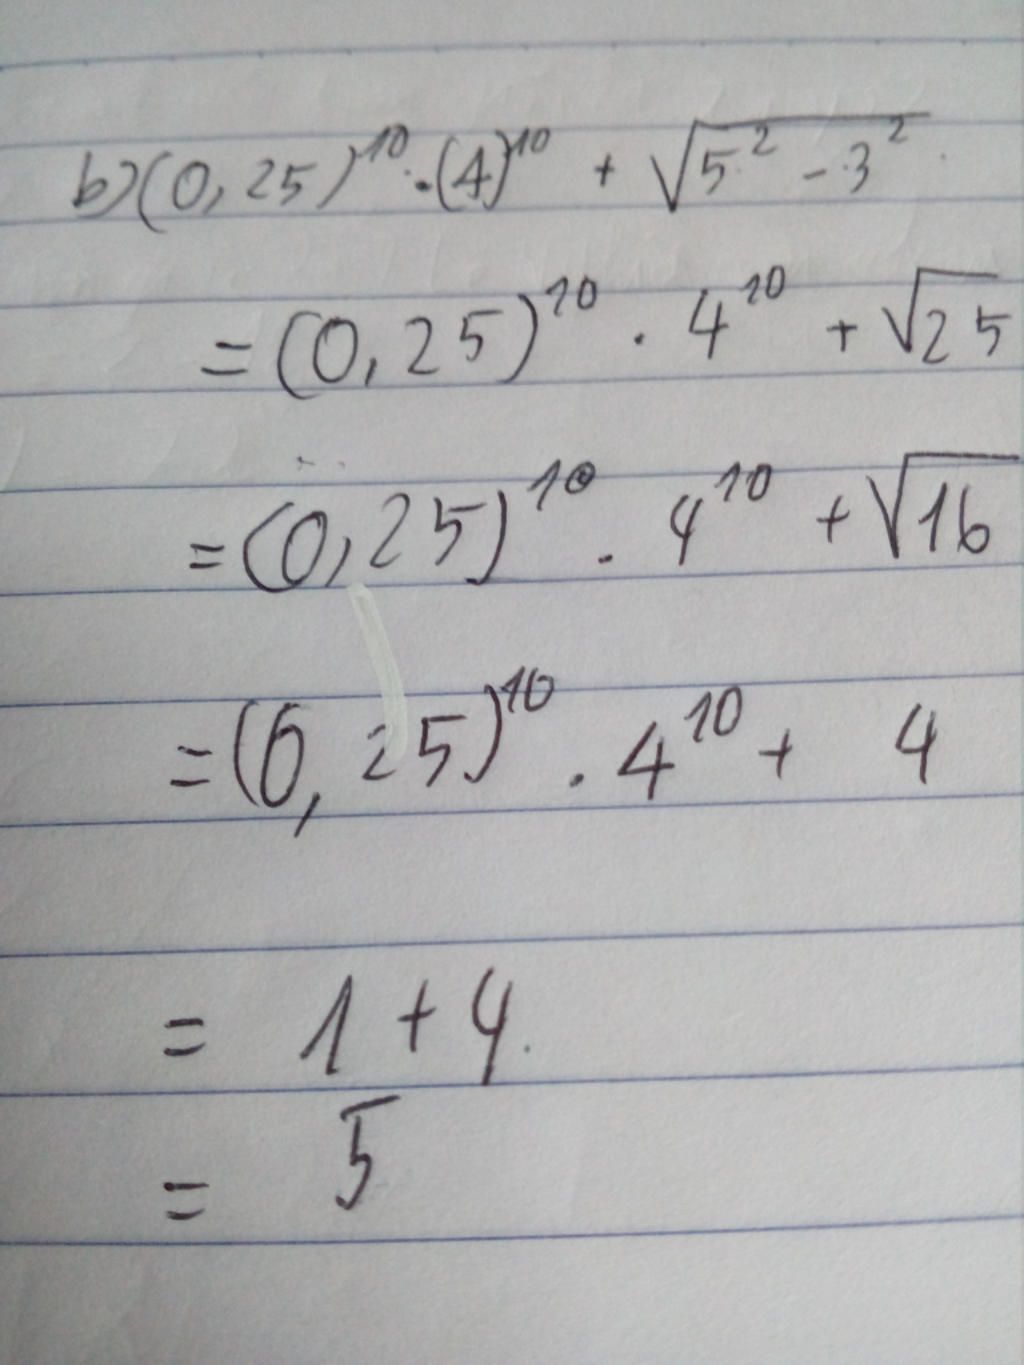 b) (0,25)¹⁰ · (4)¹⁰ + √(5² - 3²)
= (0,25)¹⁰ · 4¹⁰ + √25
= (0,25)¹⁰ · 4¹⁰ + √16
= (0,25)¹⁰ · 4¹⁰ + 4
= 1 + 4
= 5